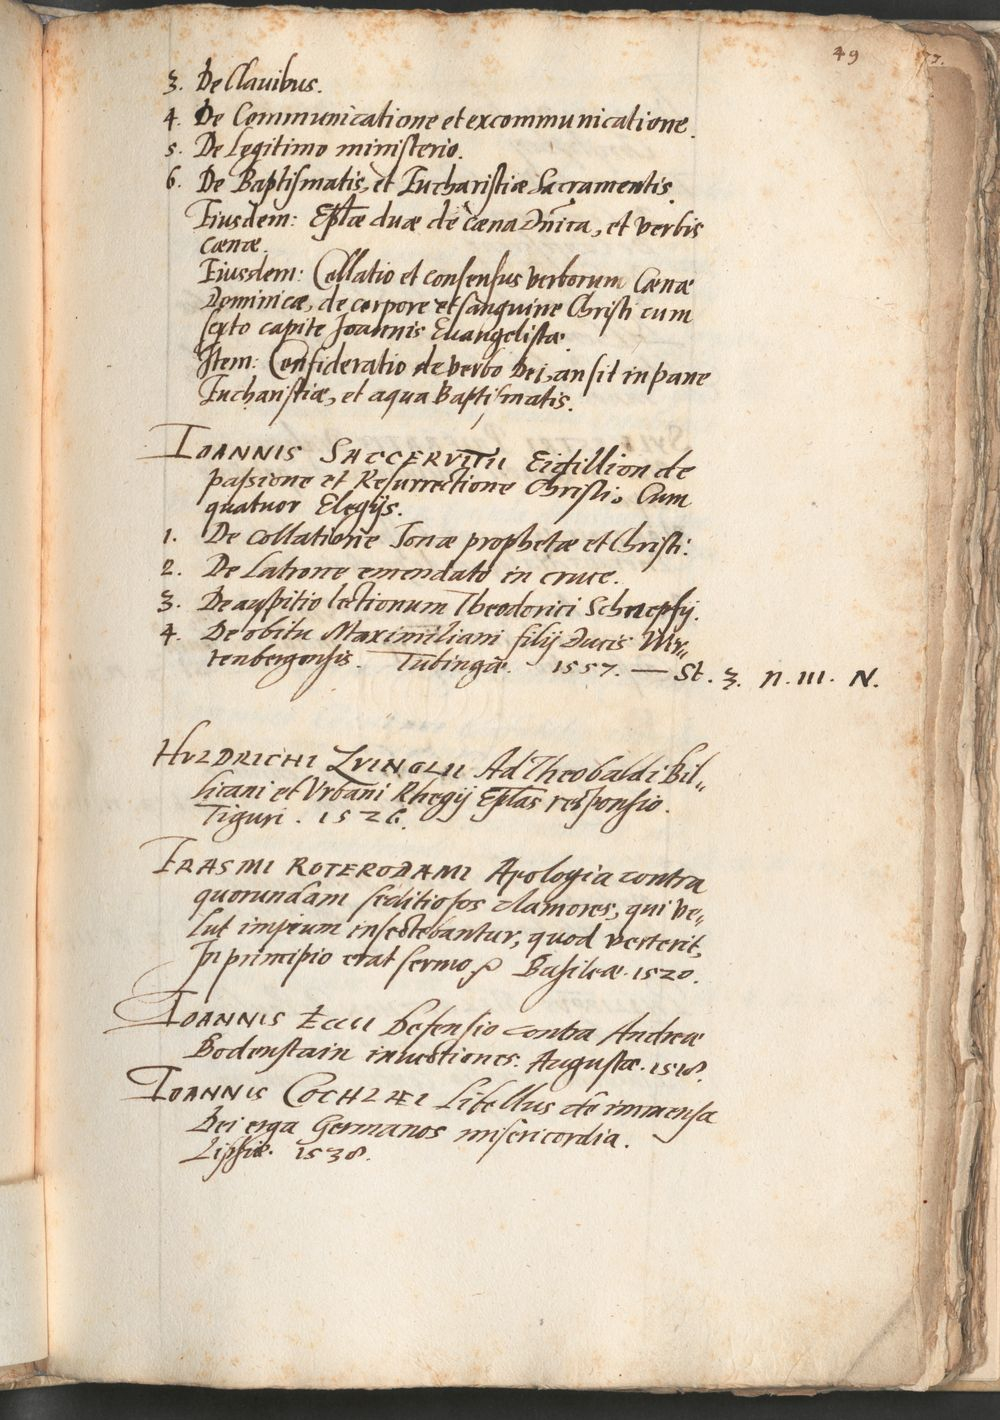 49
77.
3. De Clauibus.
4. De Communicatione et excommunicatione.
5. De legitimo ministerio.
6. De Baptismatis, et Eucharistiæ Sacramentis.
Eiusdem: Eplæ duæ de cæna Dnica, et verbis
cænæ.
Eiusdem: Collatio et consensus verborum Cænæ
Dominicæ, de corpore et sanguine Christi cum
sexto capite Joannis Euangelistæ.
Item: Consideratio de verbo Dei, an sit in pane
Eucharistiæ, et aqua Baptismatis.
IOANNIS SACCERVITII Eidillion de
passione et Resurrectione Christi. Cum
quatuor Elegijs.
1. De collatione Jonæ prophetæ et Christi:
2. De latrone emendato in cruce.
3. De auspitio lectionum Theodorici Schnepfij.
4. De obitu Maximiliani filij Ducis Wir„
tenbergensis. Tubingæ. 1557. — St. 3. n. III. N.
HVLDRICHI ZVINGLII Ad Theobaldi Bil„
licani et Vrbani Rhegij Eplas responsio.
Tiguri. 1526.
ERASMI ROTERODAMI Apologia contra
quorundam seditiosos clamores, qui ve„
lut impium insectebantur, quod verterit,
In principio erat sermo Basileæ. 1520.
IOANNIS ECCII Defensio contra Andreæ
Bodenstain inuectiones. Augustæ. 1518.
IOANNIS COCHLÆI Libellus de immensa
Dei erga Germanos misericordia.
Lipsiæ. 1538.